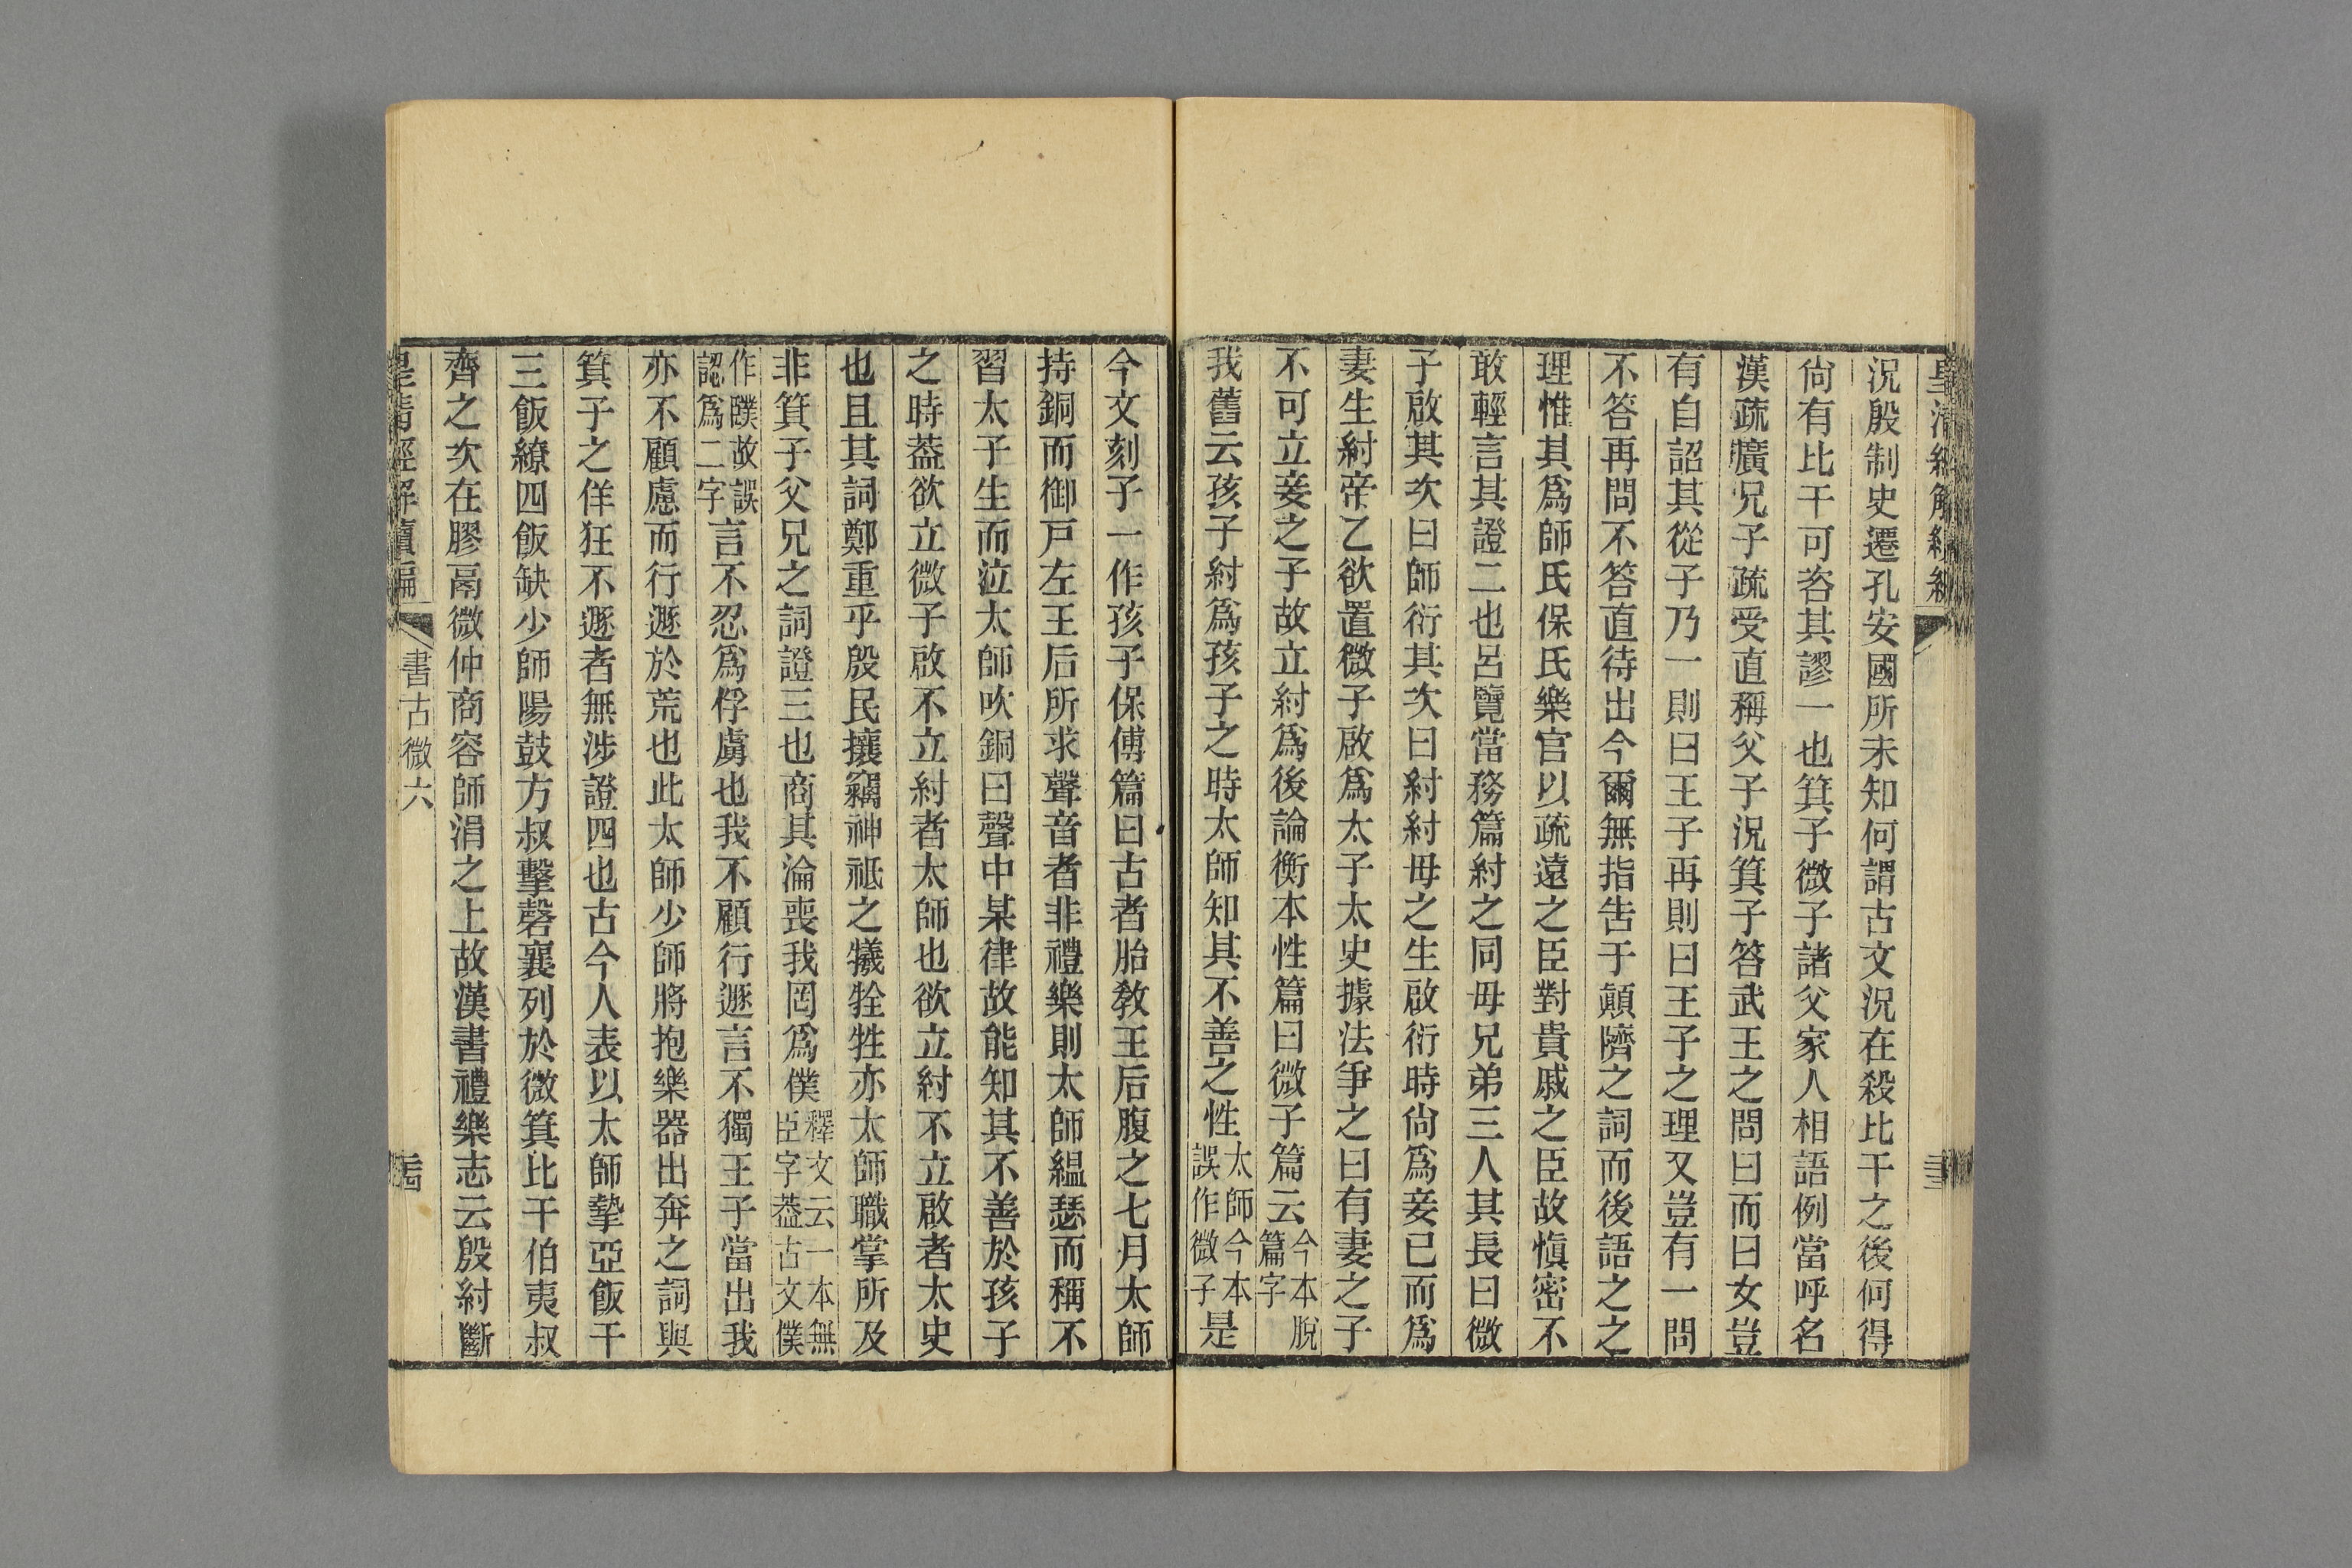 皇清經解續編
況殷制史遷孔安國所未知何謂古文況在殺比干之後何得
尙有比干可咨其謬一也箕子微子諸父家人相語例當呼名
漢疏廣兄子疏受直稱父子況箕子答武王之問曰而曰女豈
有自詔其從子乃一則曰王子再則曰王子之理又豈有一問
不答再問不答直待出今爾無指告于顚隮之詞而後語之之
理惟其爲師氏保氏樂官以疏遠之臣對貴戚之臣故愼密不
敢輕言其證二也呂覽當務篇紂之同母兄弟三人其長曰微
子啟其次曰師衍其次曰紂紂母之生啟衍時尙爲妾已而爲
妻生紂帝乙欲置微子啟爲太子太史據法爭之曰有妻之子
不可立妾之子故立紂爲後論衡本性篇曰微子篇云今本脫篇字
我舊云孩子紂爲孩子之時太師知其不善之性太師今本誤作微子是
今文刻子一作孩子保傅篇曰古者胎敎王后腹之七月太師
持銅而御戸左王后所求聲音者非禮樂則太師縕瑟而稱不
習太子生而泣太師吹銅曰聲中某律故能知其不善於孩子
之時葢欲立微子啟不立紂者太師也欲立紂不立啟者太史
也且其詞鄭重乎殷民攘竊神祗之犧牷牲亦太師職掌所及
非箕子父兄之詞證三也商其淪喪我罔爲僕釋文云一本無臣字葢古文僕
作䑑故誤認爲二字言不忍爲俘虜也我不顧行遯言不獨王子當出我
亦不顧慮而行遯於荒也此太師少師將抱樂器出奔之詞與
箕子之佯狂不遯者無涉證四也古今人表以太師摯亞飯干
三飯繚四飯缺少師陽鼓方叔擊磬襄列於微箕比干伯夷叔
齊之次在膠鬲微仲商容師涓之上故漢書禮樂志云殷紂斷
皇淸經解續編
書古微六